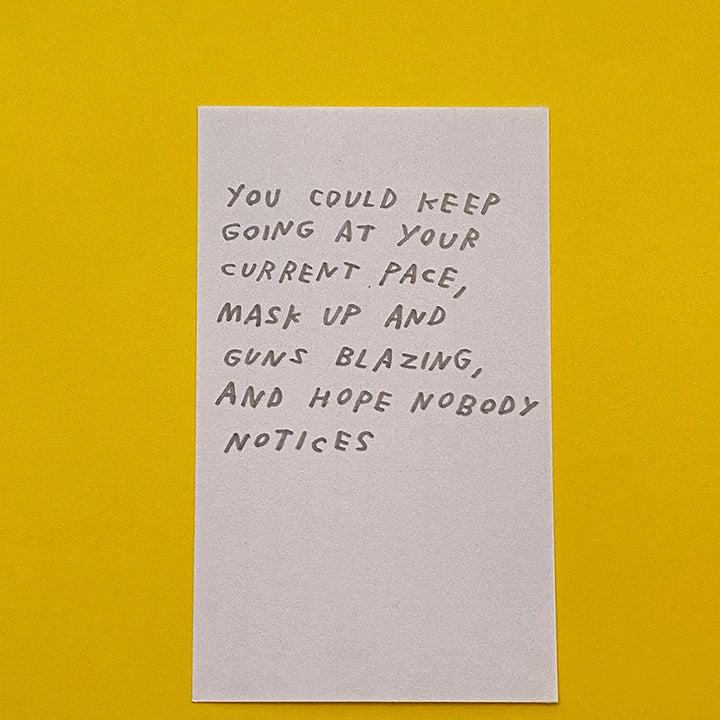 YOU COULD KEEP
GOING AT YOUR
CURRENT PACE,
MASK UP AND
GUNS BLAZING,
AND HOPE NOBODY
NOTICES